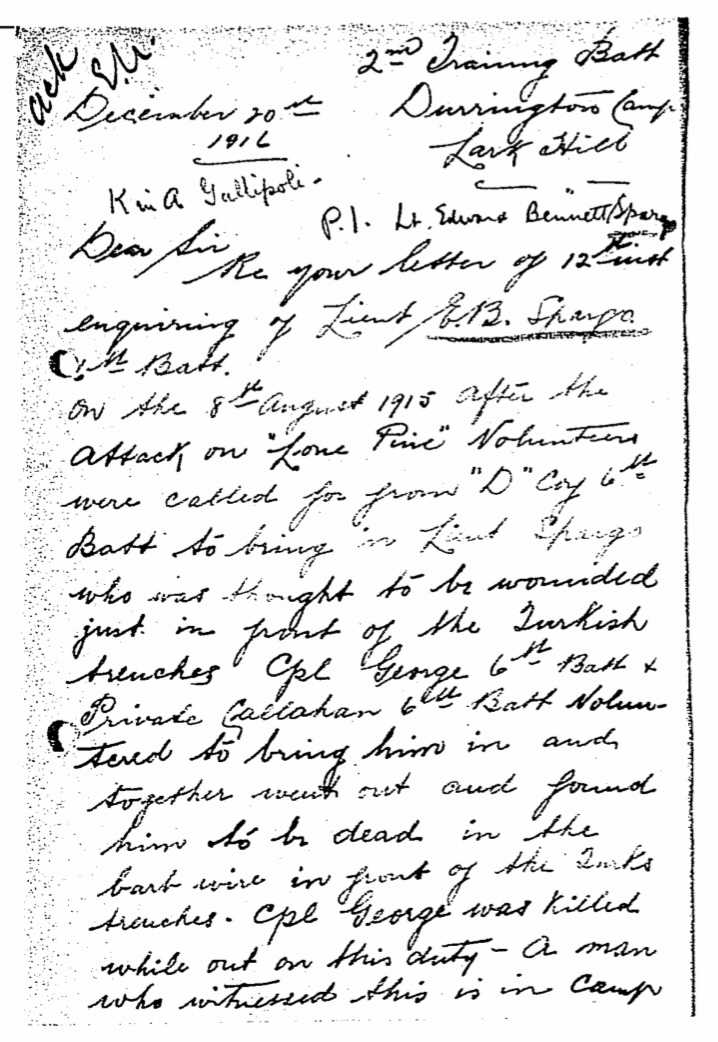 ack
E.M.
2nd Training Batt
December 20th Durrington Camp
1916 Lark Hill
K in A Gallipoli.
P.1. Lt. Edward Bennett Spargo
Dear Sir
Re your letter of 12th inst
enquiring of Lieut E.B. Spargo
Batt.
On the 8th August 1915 after the
attack on "Lone Pine" Volunteers
were called for from "D" Coy 6th
Batt to bring in Lieut Spargo
who was thought to be wounded
just in front of the Turkish
trenches Cpl George 6th Batt &
Private Callahan 6th Batt Volun-
tered to bring him in and
together went out and found
him to be dead in the
barb wire in front of the Turks
trenches - Cpl George was killed
while out on this duty - A man
who witnessed this is in Camp